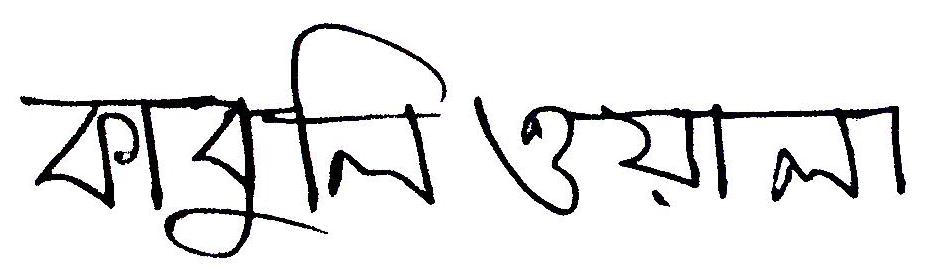 কাবুলিওয়ালা